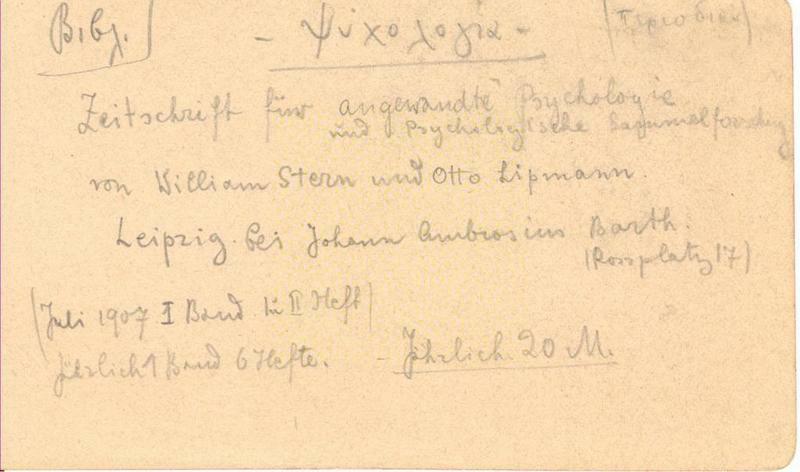 Βιβλ. - Ψυχολογία - (Περιοδικά)
Zeitschrift für angewandte Psychologie
und Psychologische Sammelforschung
von William Stern und Otto Lipmann.
Leipzig bei Johann Ambrosius Barth.
(Rossplatz 17)
(Juli 1907 I Band I u II Heft)
jährlich 1 Band 6 Hefte. - Jährlich 20 M.